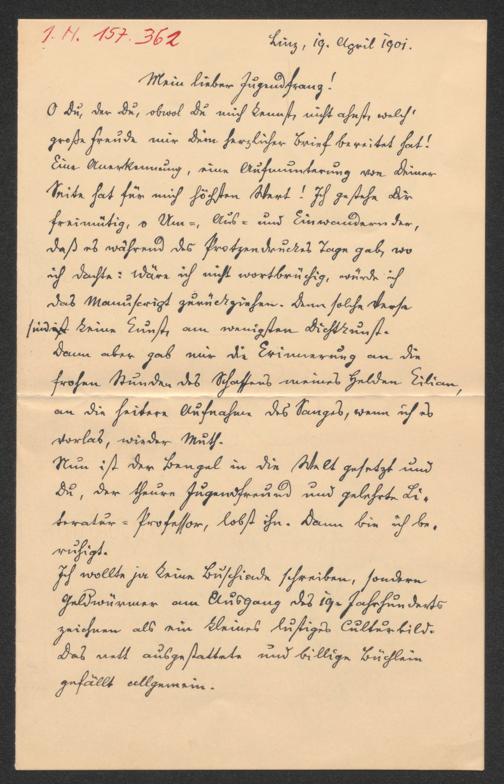 I. N. 157.362
Linz, 19. April 1901.
Mein lieber Jugendfranz!
O Du, der Du, obwol Du mich kennst, nicht ahnst, welch'
große Freude mir Dein herzlicher Brief bereitet hat!
Eine Anerkennung, eine Aufmunterung von Deiner
Seite hat für mich höchsten Wert! Ich gestehe Dir
freimütig, o Um-, Aus- und Einwandernder,
daß es während des Protzendruckes Tage gab, wo
ich dachte: wäre ich nicht wortbrüchig, würde ich
das Manuscript zurückziehen. Denn solche Verse
sind keine Kunst, am wenigsten Dichtkunst.
Dann aber gab mir die Erinnerung an die
frohen Stunden des Schaffens meines Helden Kilian,
an die heitere Aufnahme des Sanges, wenn ich es
vorlas, wieder Muth.
Nun ist der Bengel in die Welt gesetzt und
Du, der theure Jugendfreund und gelehrte Li-
teratur-Professor, lobst ihn. Dann bin ich be-
ruhigt.
Ich wollte ja keine Buschiade schreiben, sondern
Geldwürmer am Ausgang des 19. Jahrhunderts
zeichnen als ein kleines lustiges Culturbild.
Das nett ausgestattete und billige Büchlein
gefällt allgemein.